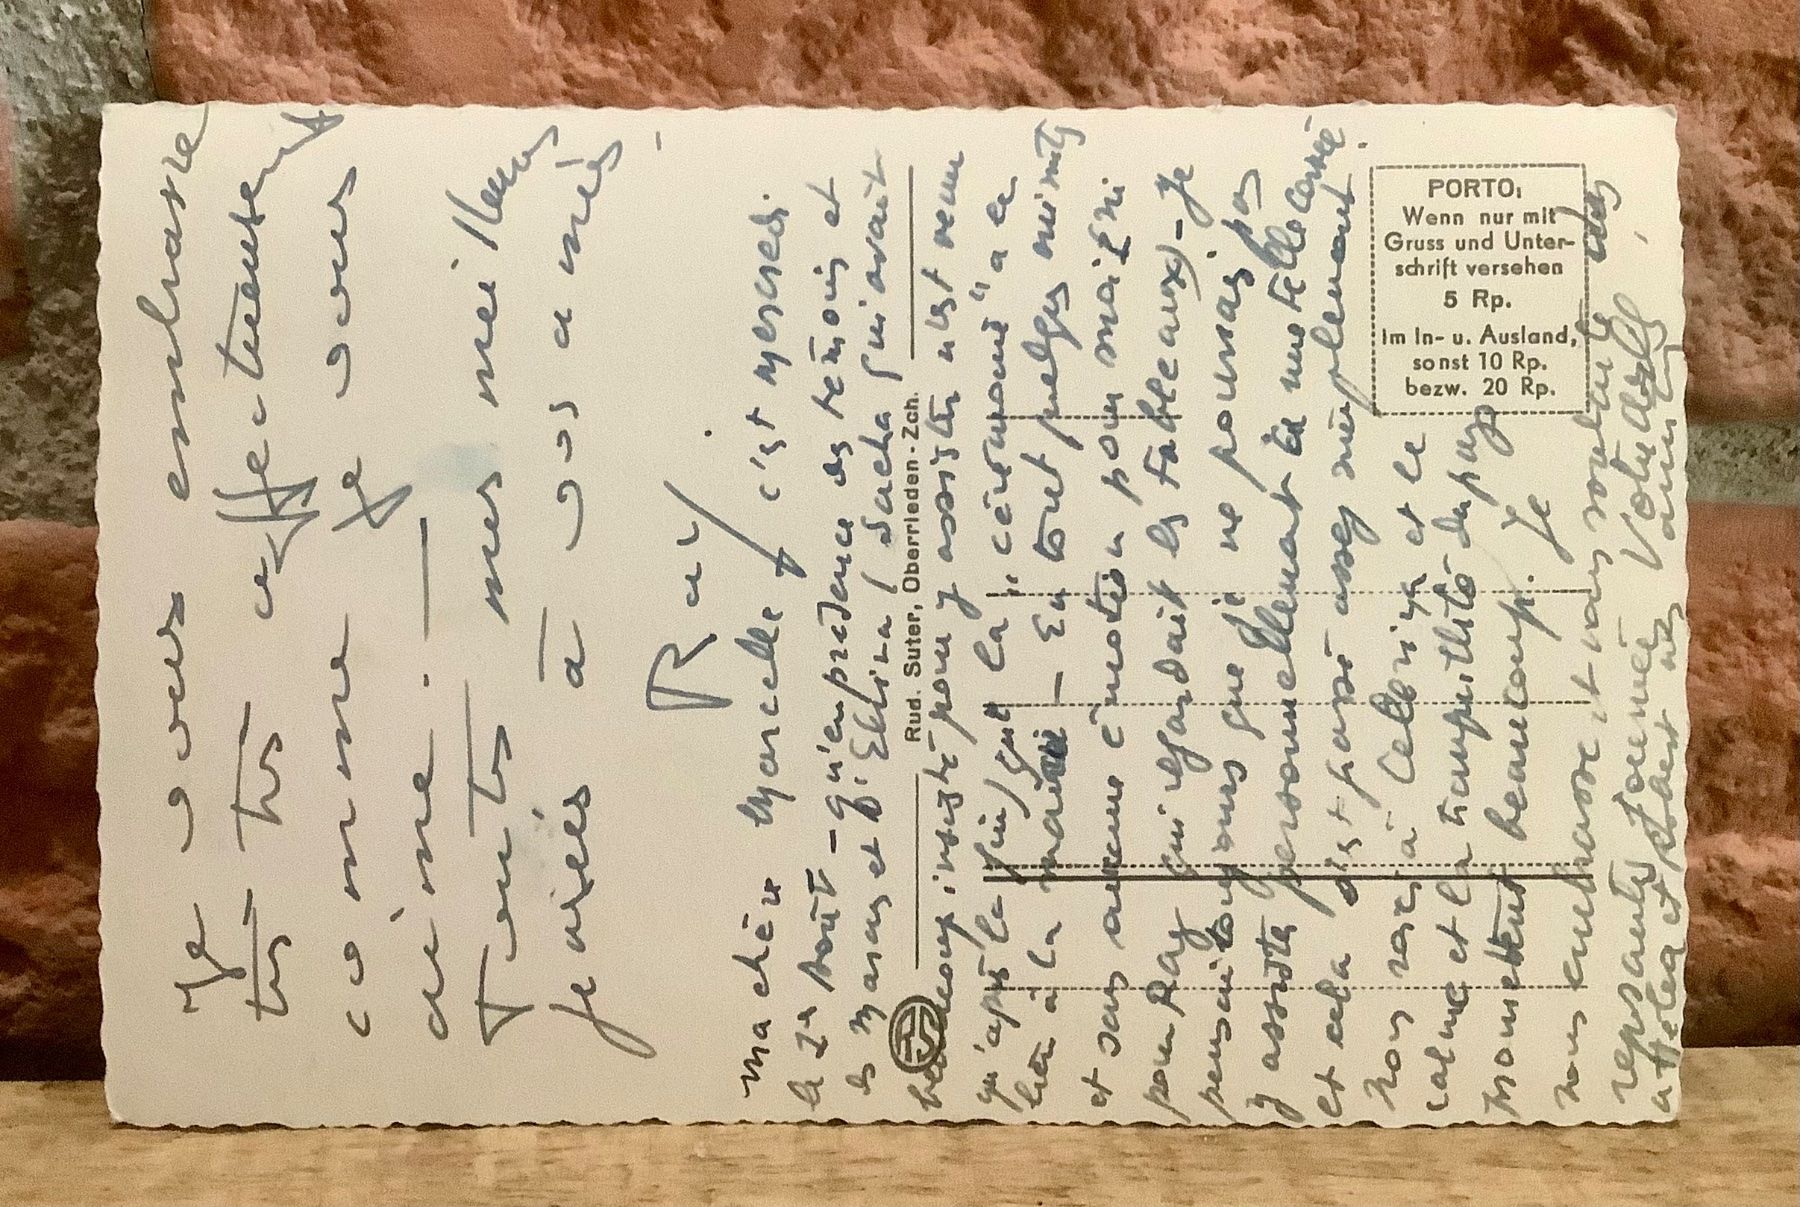 Ma chère Marcelle, c'est mercredi
le 27 Août – qu'en présence des témoins et
les Marcus et Elvira (Sacha qui avait
beaucoup insisté pour y assister n'est venu
qu'après la fin) que la "cérémonie" a eu
lieu à la mairie – En tout quelques minutes
et sans aucune émotion pour moi (ni
pour Ray qui regardait les tableaux) – Je
pensais toujours que je ne pourrais pas
y assister personnellement
et cela s'est passé assez simplement.
Nous voici à Cellerina et le
calme et la tranquillité du pays
promettent beaucoup. Je
vous embrasse et vous souhaite des
reposants
Je vous embrasse
très très affectueusement
comme je vous
aime. –
Toutes mes meilleures
pensées à vos amis –
Ray
Rud. Suter, Oberrieden-Zch.
PORTO:
Wenn nur mit
Gruss und Unter-
schrift versehen
5 Rp.
Im In- u. Ausland,
sonst 10 Rp.
bezw. 20 Rp.